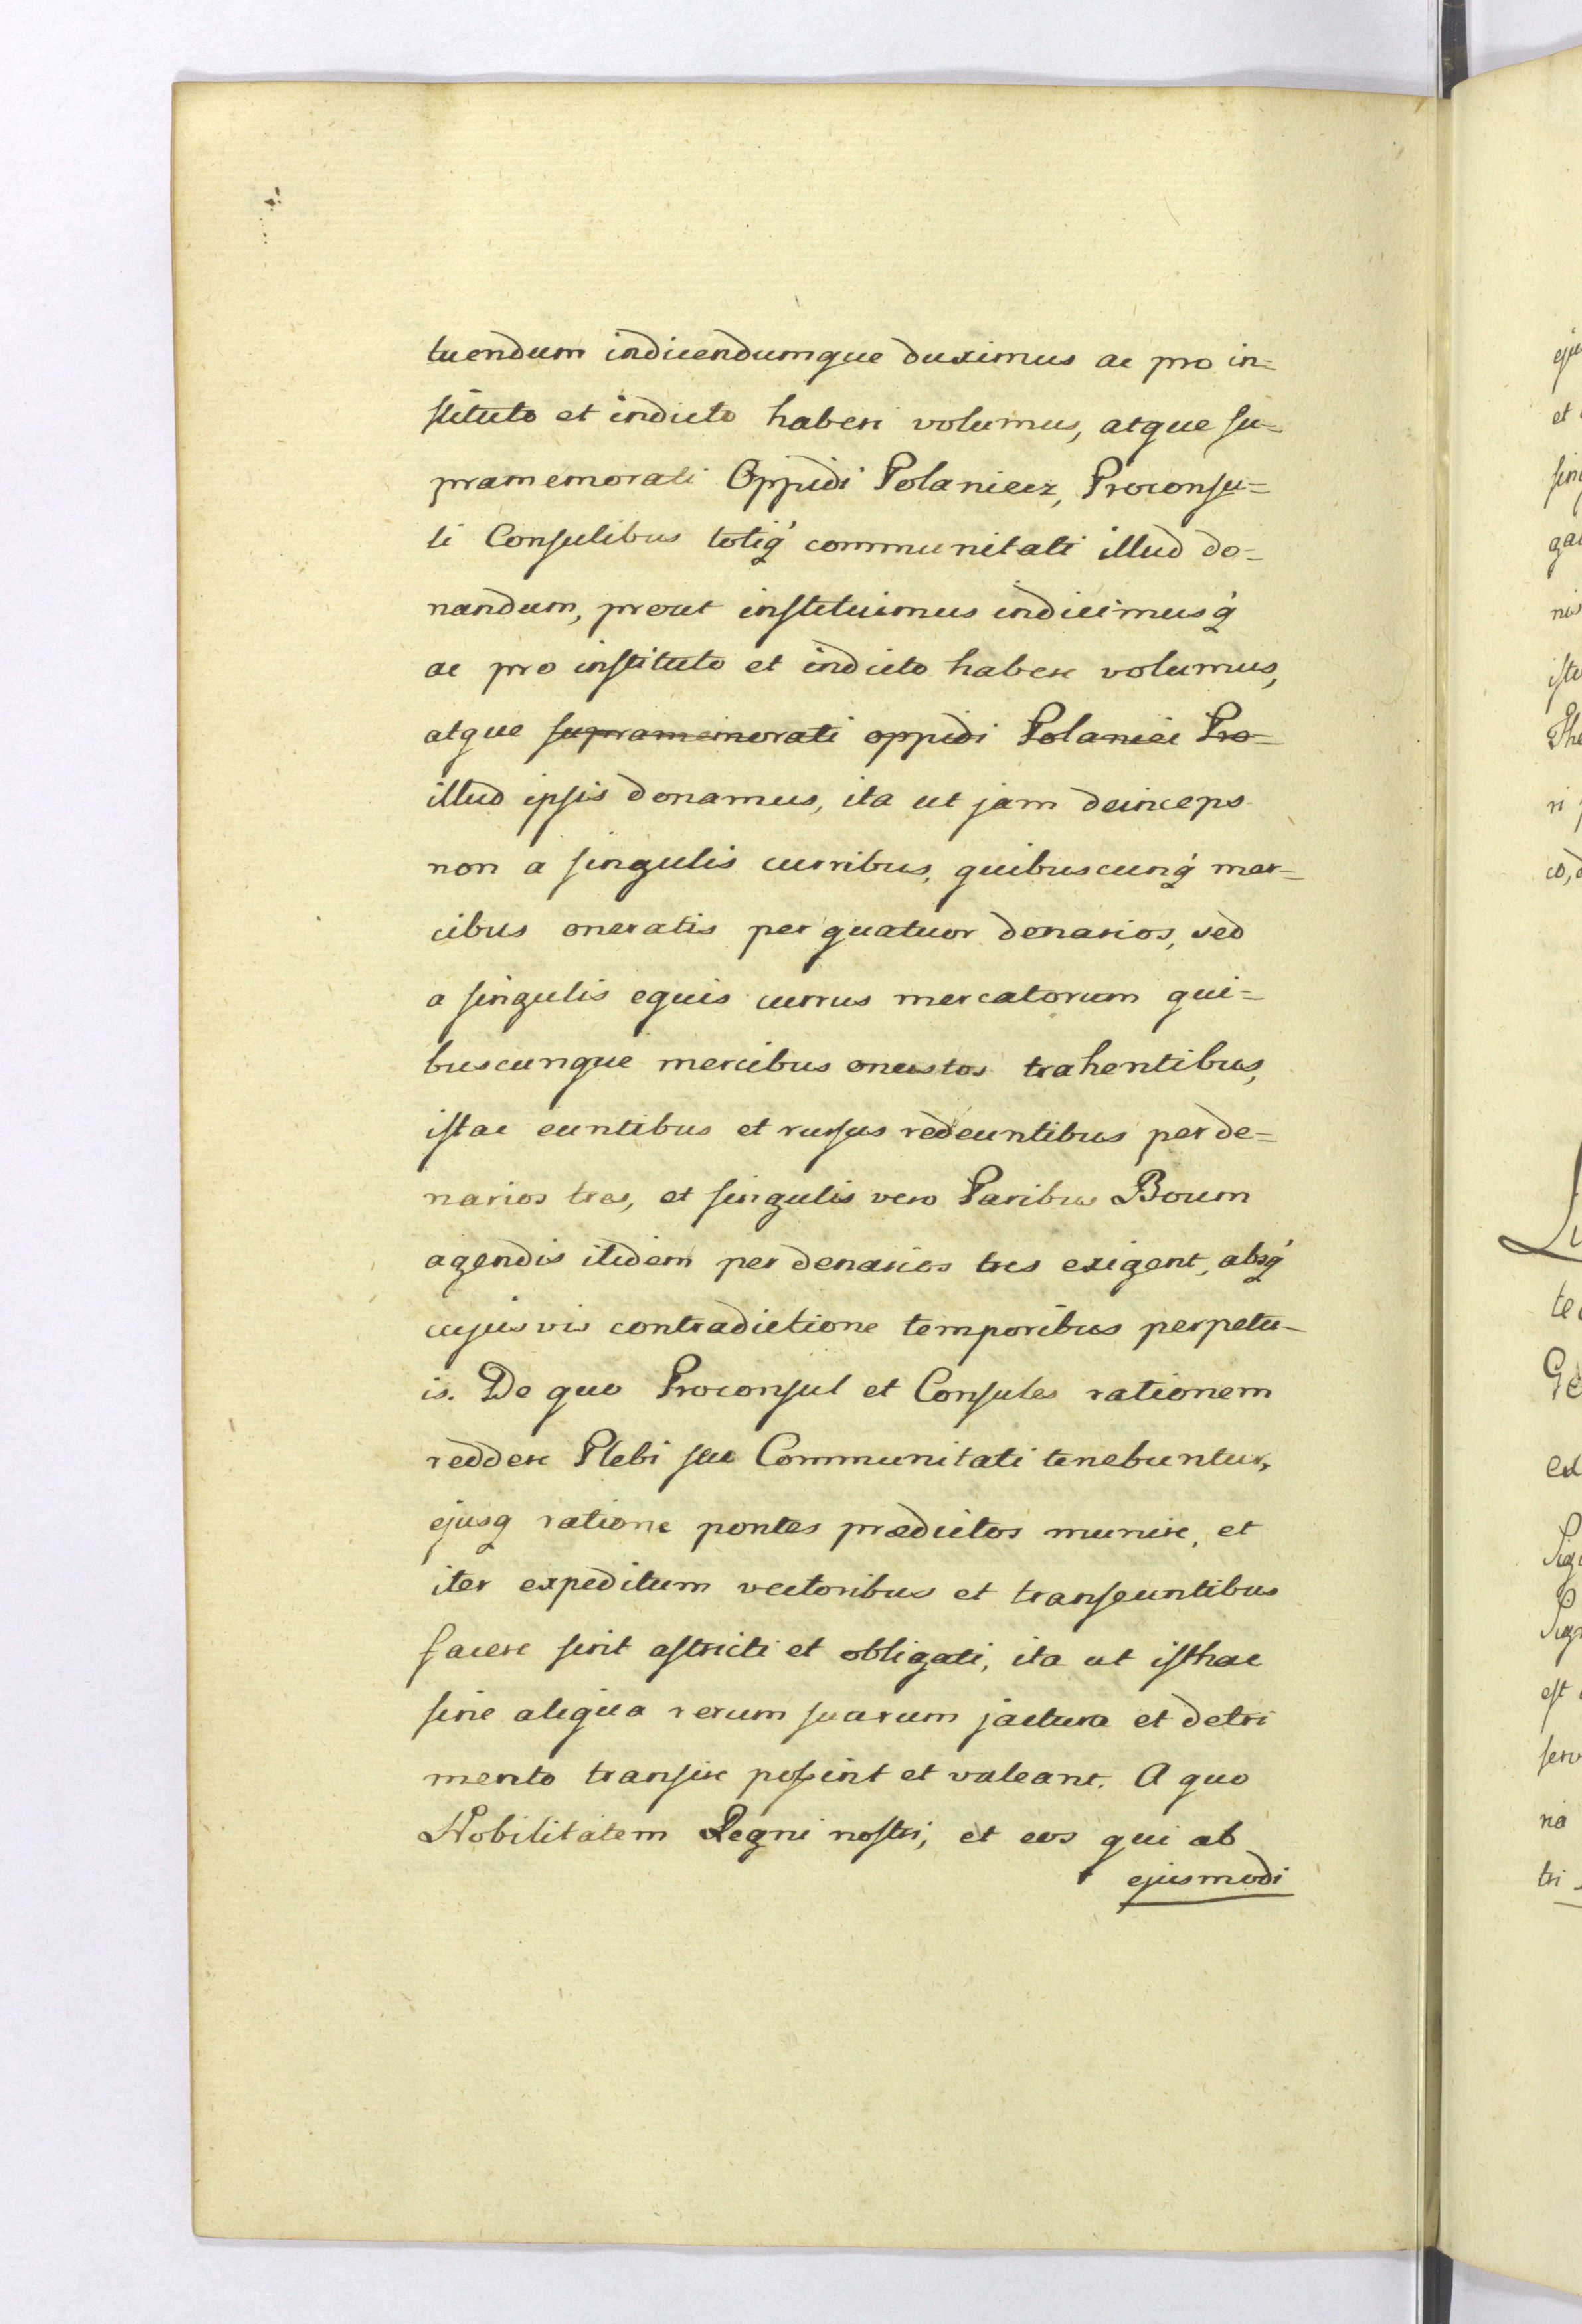 tuendum indicendumque duximus ac pro in=
stituto et indicto haberi volumus, atque su=
pramemorati Oppidi Polaniecz, Proconsu=
li Consulibus totiq́ communitati illud do=
nandum, prout instituimus indicimusq́
ac pro instituto et indicto habere volumus,
atque supramemorati oppidi Polaniec Pro=
illud ipsis donamus, ita ut jam deinceps
non a singulis curribus, quibuscunq́ mer=
cibus oneratis per quatuor denarios, sed
a singulis equis currus mercatorum qui=
buscunque mercibus onustos trahentibus,
istac euntibus et rursus redeuntibus per de=
narios tres, et singulis vero Paribus Boum
agendis itidem per denarios tres exigent, absq́
cujusvis contradictione temporibus perpetu=
is. De quo Proconsul et Consules rationem
reddere Plebi seu Communitati tenebuntur,
ejusq ratione pontes prædictos munire, et
iter expeditum vectoribus et transeuntibus
facere sint astricti et obligati, ita ut isthac
sine aliqua rerum suarum jactura et detri
mento transire possint et valeant. A quo
Nobilitatem Regni nostri, et eos qui ab
ejusmodi